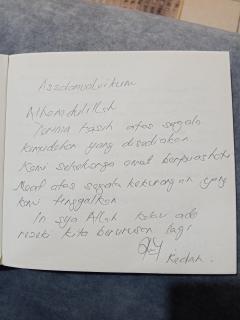 Assalamualaikum
Alhamdulillah
Terima kasih atas segala
kemudahan yang disediakan
Kami sekeluarga amat berpuashati
Maaf atas segala kekurangan yang
kami tinggalkan
In sya Allah kalau ada
rezeki kita berurusan lagi
Kedah.